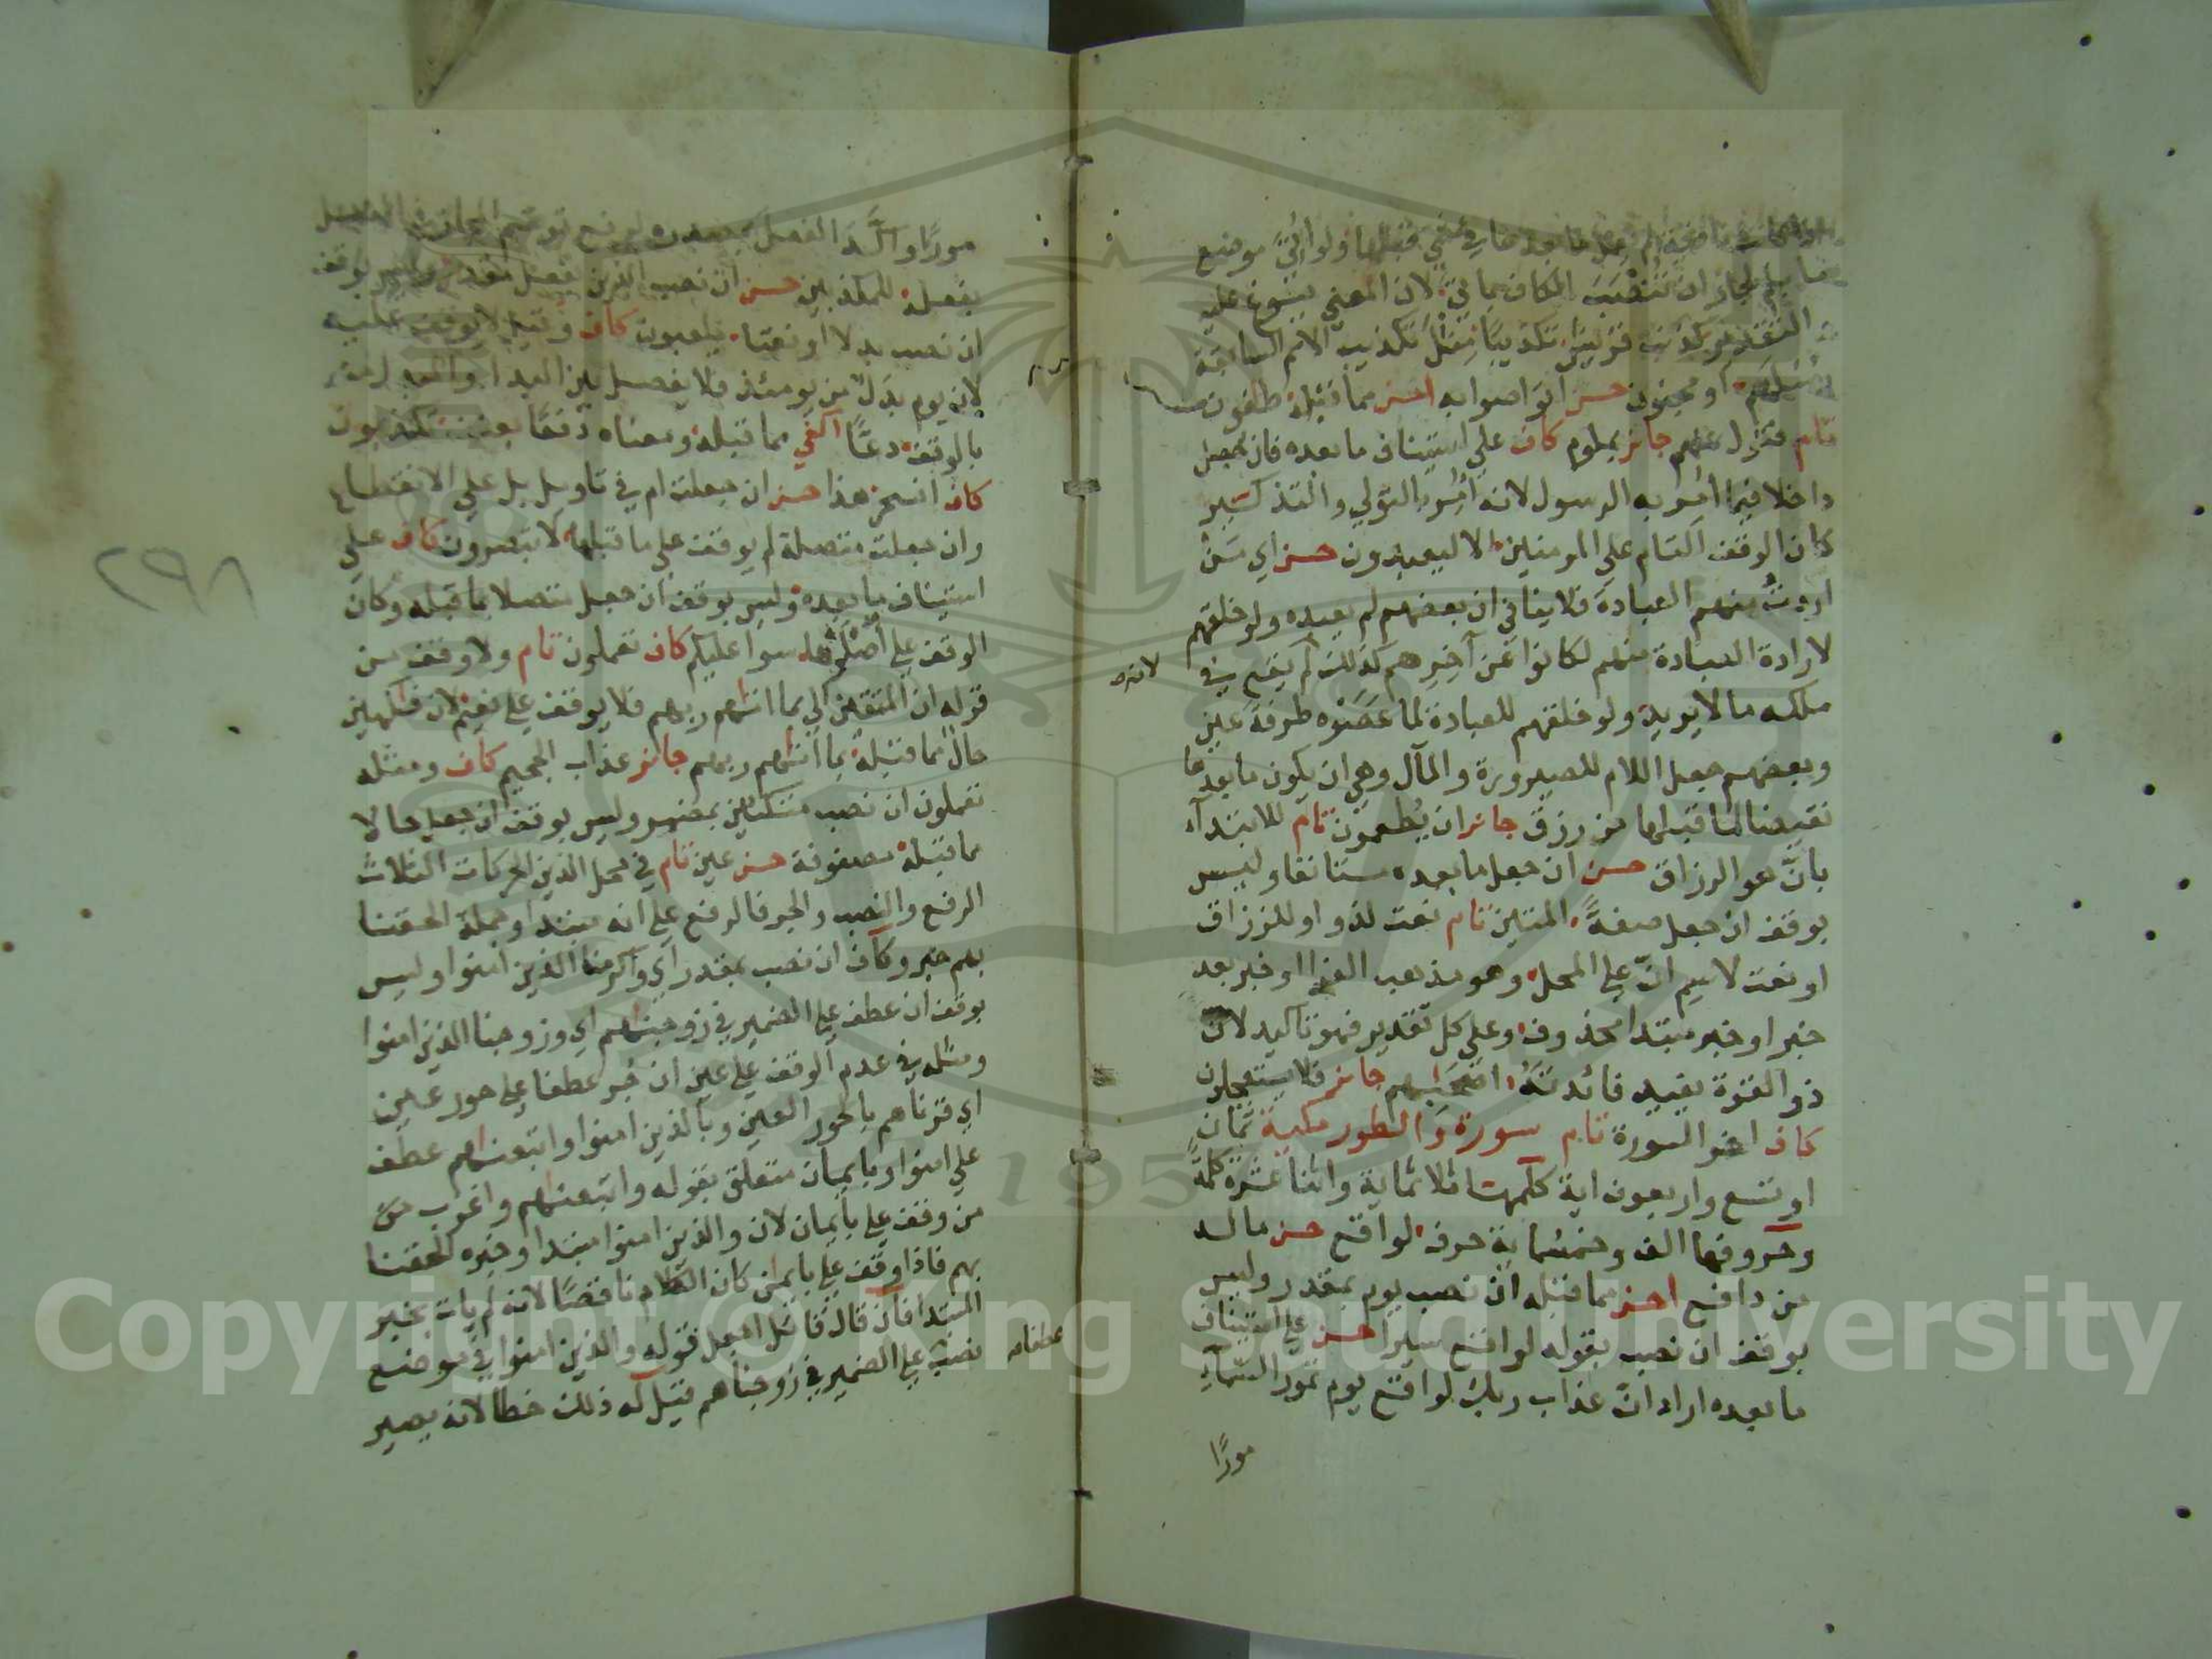 ما بعدها في قبلها ولو اتي موضع
ما بلم لجاز ان تنتصب الكاف بما اتي لان المعني يسوغ عليه
التقدير كذبت قريش تكذيبا مثل تكذيب الامم السابقة
او مجنون حسن اتواصوا به احسن مما قبله طاغون
تام فتول عنهم جائز بملوم كاف علي استيناف ما بعده فان جعل
داخلا فيما امر به الرسول لانه امر بالتولي والتذكير
كان الوقف التام علي المومنين الا ليعبدون حسن اي من
اردت منهم العبادة فلا ينافي ان بعضهم لم يعبده ولو خلقهم
لارادة العبادة منهم لكانوا عن اخرهم كذلك لم يقع في
لانه
ملكه ما لا يريد ولو خلقهم للعبادة لما عصوه طرفة عين
وبعضهم جعل اللام للصيرورة والمآل وهي ان يكون ما بعدها
نقيضا لما قبلها من رزق جائز ان يطعمون تام للابتداء
بان هو الرزاق حسن ان جعل ما بعده مستانفا وليس
بوقف ان جعل صفة المتين تام نعت لذو او للرزاق
او نعت لاسم ان علي المحل وهو مذهب الفرا او خبر بعد
خبر او خبر مبتدا محذوف وعلي كل تقدير فهو تاكيد لان
ذو القوة يفيد فائدته اصحابهم جائز فلا يستعجلون
كاف اخر السورة تام سورة والطور مكية ثمان
او تسع واربعون اية كلمها ثلاثماية واثنا عشرة كلمة
وحروفها الف وخمسماية حرف لواقع حسن ما له
من دافع احسن مما قبله ان نصب يوم بمقدر وليس
بوقف ان نصب بقوله لواقع سيرا حسن علي استيناف
ما بعده اراد ان عذاب ربك لواقع يوم تمور السماء
مورا
مورا واكد الفعل بمصدره لرفع توهم المجاز في الفعل
يفعله للمكذبين حسن ان نصب الذين بفعل مقدر وليس بوقف
ان نصب بدلا او نعتا يلعبون كاف وقيل لا يوقف عليه
لان يوم بدل من يومئذ فلا يفصل بين البدل والمبدل منه
بالوقف دعا اكفي مما قبله ومعناه دفعا بعنف تكذبون
كاف افسحر هذا حسن ان جعلت ام في تاويل بل علي الانقطاع
وان جعلت متصلة لم يوقف علي ما قبلها لا تبصرون كاف علي
استيناف ما بعده وليس بوقف ان جعل متصلا بما قبله وكان
الوقف علي اصلوها سوا عليكم كاف تعملون تام ولا وقف من
قوله ان المتقين الي بما اتاهم ربهم فلا يوقف علي نعيم لان فكهين
حال مما قبله بما اتاهم ربهم جائز عذاب الجحيم كاف ومثله
تعملون ان نصب متكئين بمضمر وليس بوقف ان جعل حالا
مما قبله مصفوفة حسن عين تام في محل الذين الحركات الثلاث
الرفع والنصب والجر فالرفع علي انه مبتدا وجملة الحقنا
بهم خبر وكاف ان نصب بمقدر اي واكرمنا الذين امنوا وليس
بوقف ان عطف علي الضمير في زوجناهم اي وزوجنا الذين امنوا
ومثله في عدم الوقف علي عين ان جر عطفا علي حور عين
اي قرناهم بالحور العين وبالذين امنوا واتبعناهم عطف
علي امنوا وبايمان متعلق بقوله واتبعناهم واغرب من
من وقف علي بايمان لان والذين امنوا مبتدا وخبره الحقنا
بهم فاذا وقف علي بايمان كان الكلام ناقصا لانه لم يات بخبر
المبتدا فان قال قائل اجعل قوله والذين امنوا في موضع
نصب علي الضمير في زوجناهم قيل له ذلك خطا لانه يصير
عطفا
٢٩٨
Copyright © King Saud University
1957